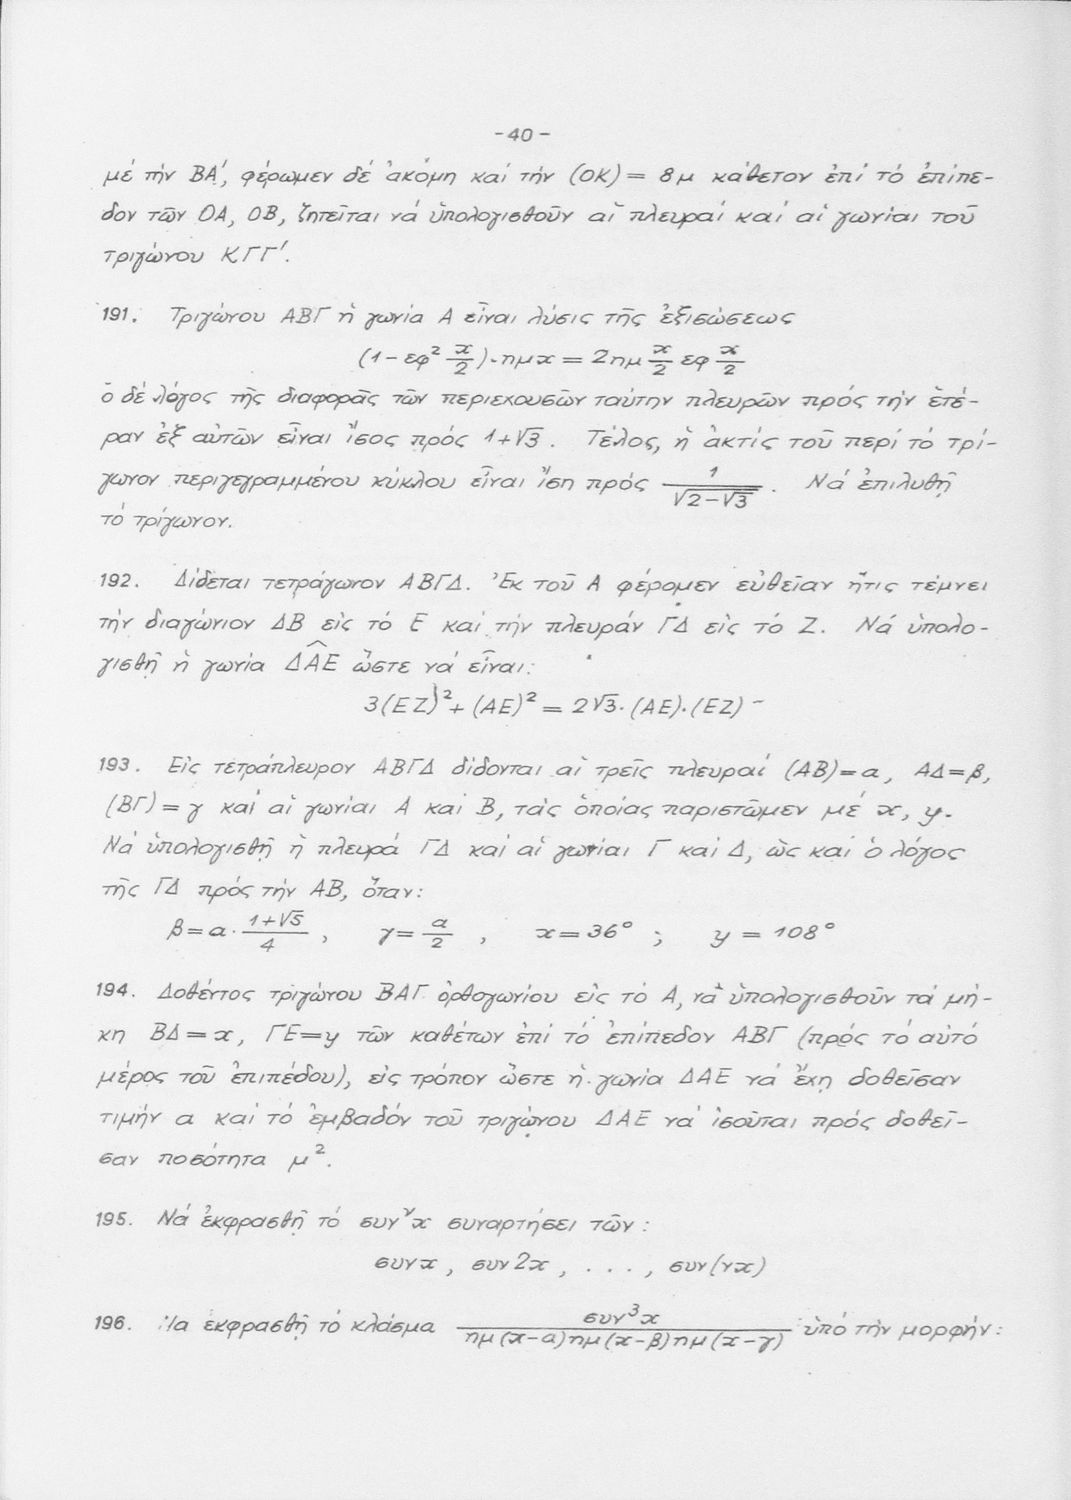 -40-
μέ τήν ΒΑ΄, φέρωμεν δέ ἀκόμη καί τήν (ΟΚ) = 8μ κάθετον ἐπί τό ἐπίπε-
δον τῶν ΟΑ, ΟΒ, ζητεῖται νά ὑπολογισθοῦν αἱ πλευραί καί αἱ γωνίαι τοῦ
τριγώνου ΚΓΓ'.
191. Τριγώνου ΑΒΓ ἡ γωνία Α εἶναι λύσις τῆς ἐξισώσεως
(1 - εφ² x/2)·ημx = 2ημ x/2 εφ x/2
ὁ δέ λόγος τῆς διαφορᾶς τῶν περιεχουσῶν ταύτην πλευρῶν πρός τήν ἑτέ-
ραν ἐξ αὐτῶν εἶναι ἴσος πρός 1+√3. Τέλος, ἡ ἀκτίς τοῦ περί τό τρί-
γωνον περιγεγραμμένου κύκλου εἶναι ἴση πρός 1/√(2-√3). Νά ἐπιλυθῇ
τό τρίγωνον.
192. Δίδεται τετράγωνον ΑΒΓΔ. Ἐκ τοῦ Α φέρομεν εὐθεῖαν ἥτις τέμνει
τήν διαγώνιον ΔΒ εἰς τό Ε καί τήν πλευράν ΓΔ εἰς τό Ζ. Νά ὑπολο-
γισθῇ ἡ γωνία ΔÂΕ ὥστε νά εἶναι:
3(ΕΖ)² + (ΑΕ)² = 2√3·(ΑΕ)·(ΕΖ) -
193. Εἰς τετράπλευρον ΑΒΓΔ δίδονται αἱ τρεῖς πλευραί (ΑΒ)=α, ΑΔ=β,
(ΒΓ)=γ καί αἱ γωνίαι Α καί Β, τάς ὁποίας παριστῶμεν μέ x, y.
Νά ὑπολογισθῇ ἡ πλευρά ΓΔ καί αἱ γωνίαι Γ καί Δ, ὡς καί ὁ λόγος
τῆς ΓΔ πρός τήν ΑΒ, ὅταν:
β=α·(1+√5)/4 , γ=α/2 , x=36° ; y = 108°
194. Δοθέντος τριγώνου ΒΑΓ ὀρθογωνίου εἰς τό Α, νά ὑπολογισθοῦν τά μή-
κη ΒΔ=x, ΓΕ=y τῶν καθέτων ἐπί τό ἐπίπεδον ΑΒΓ (πρός τό αὐτό
μέρος τοῦ ἐπιπέδου), εἰς τρόπον ὥστε ἡ γωνία ΔΑΕ νά ἔχῃ δοθεῖσαν
τιμήν α καί τό ἐμβαδόν τοῦ τριγώνου ΔΑΕ νά ἰσοῦται πρός δοθεῖ-
σαν ποσότητα μ².
195. Νά ἐκφρασθῇ τό συνᵛx συναρτήσει τῶν:
συνx , συν2x , . . . , συν(νx)
196. Να ἐκφρασθῇ τό κλάσμα συν³x/ημ(x-α)ημ(x-β)ημ(x-γ) ὑπό τήν μορφήν: